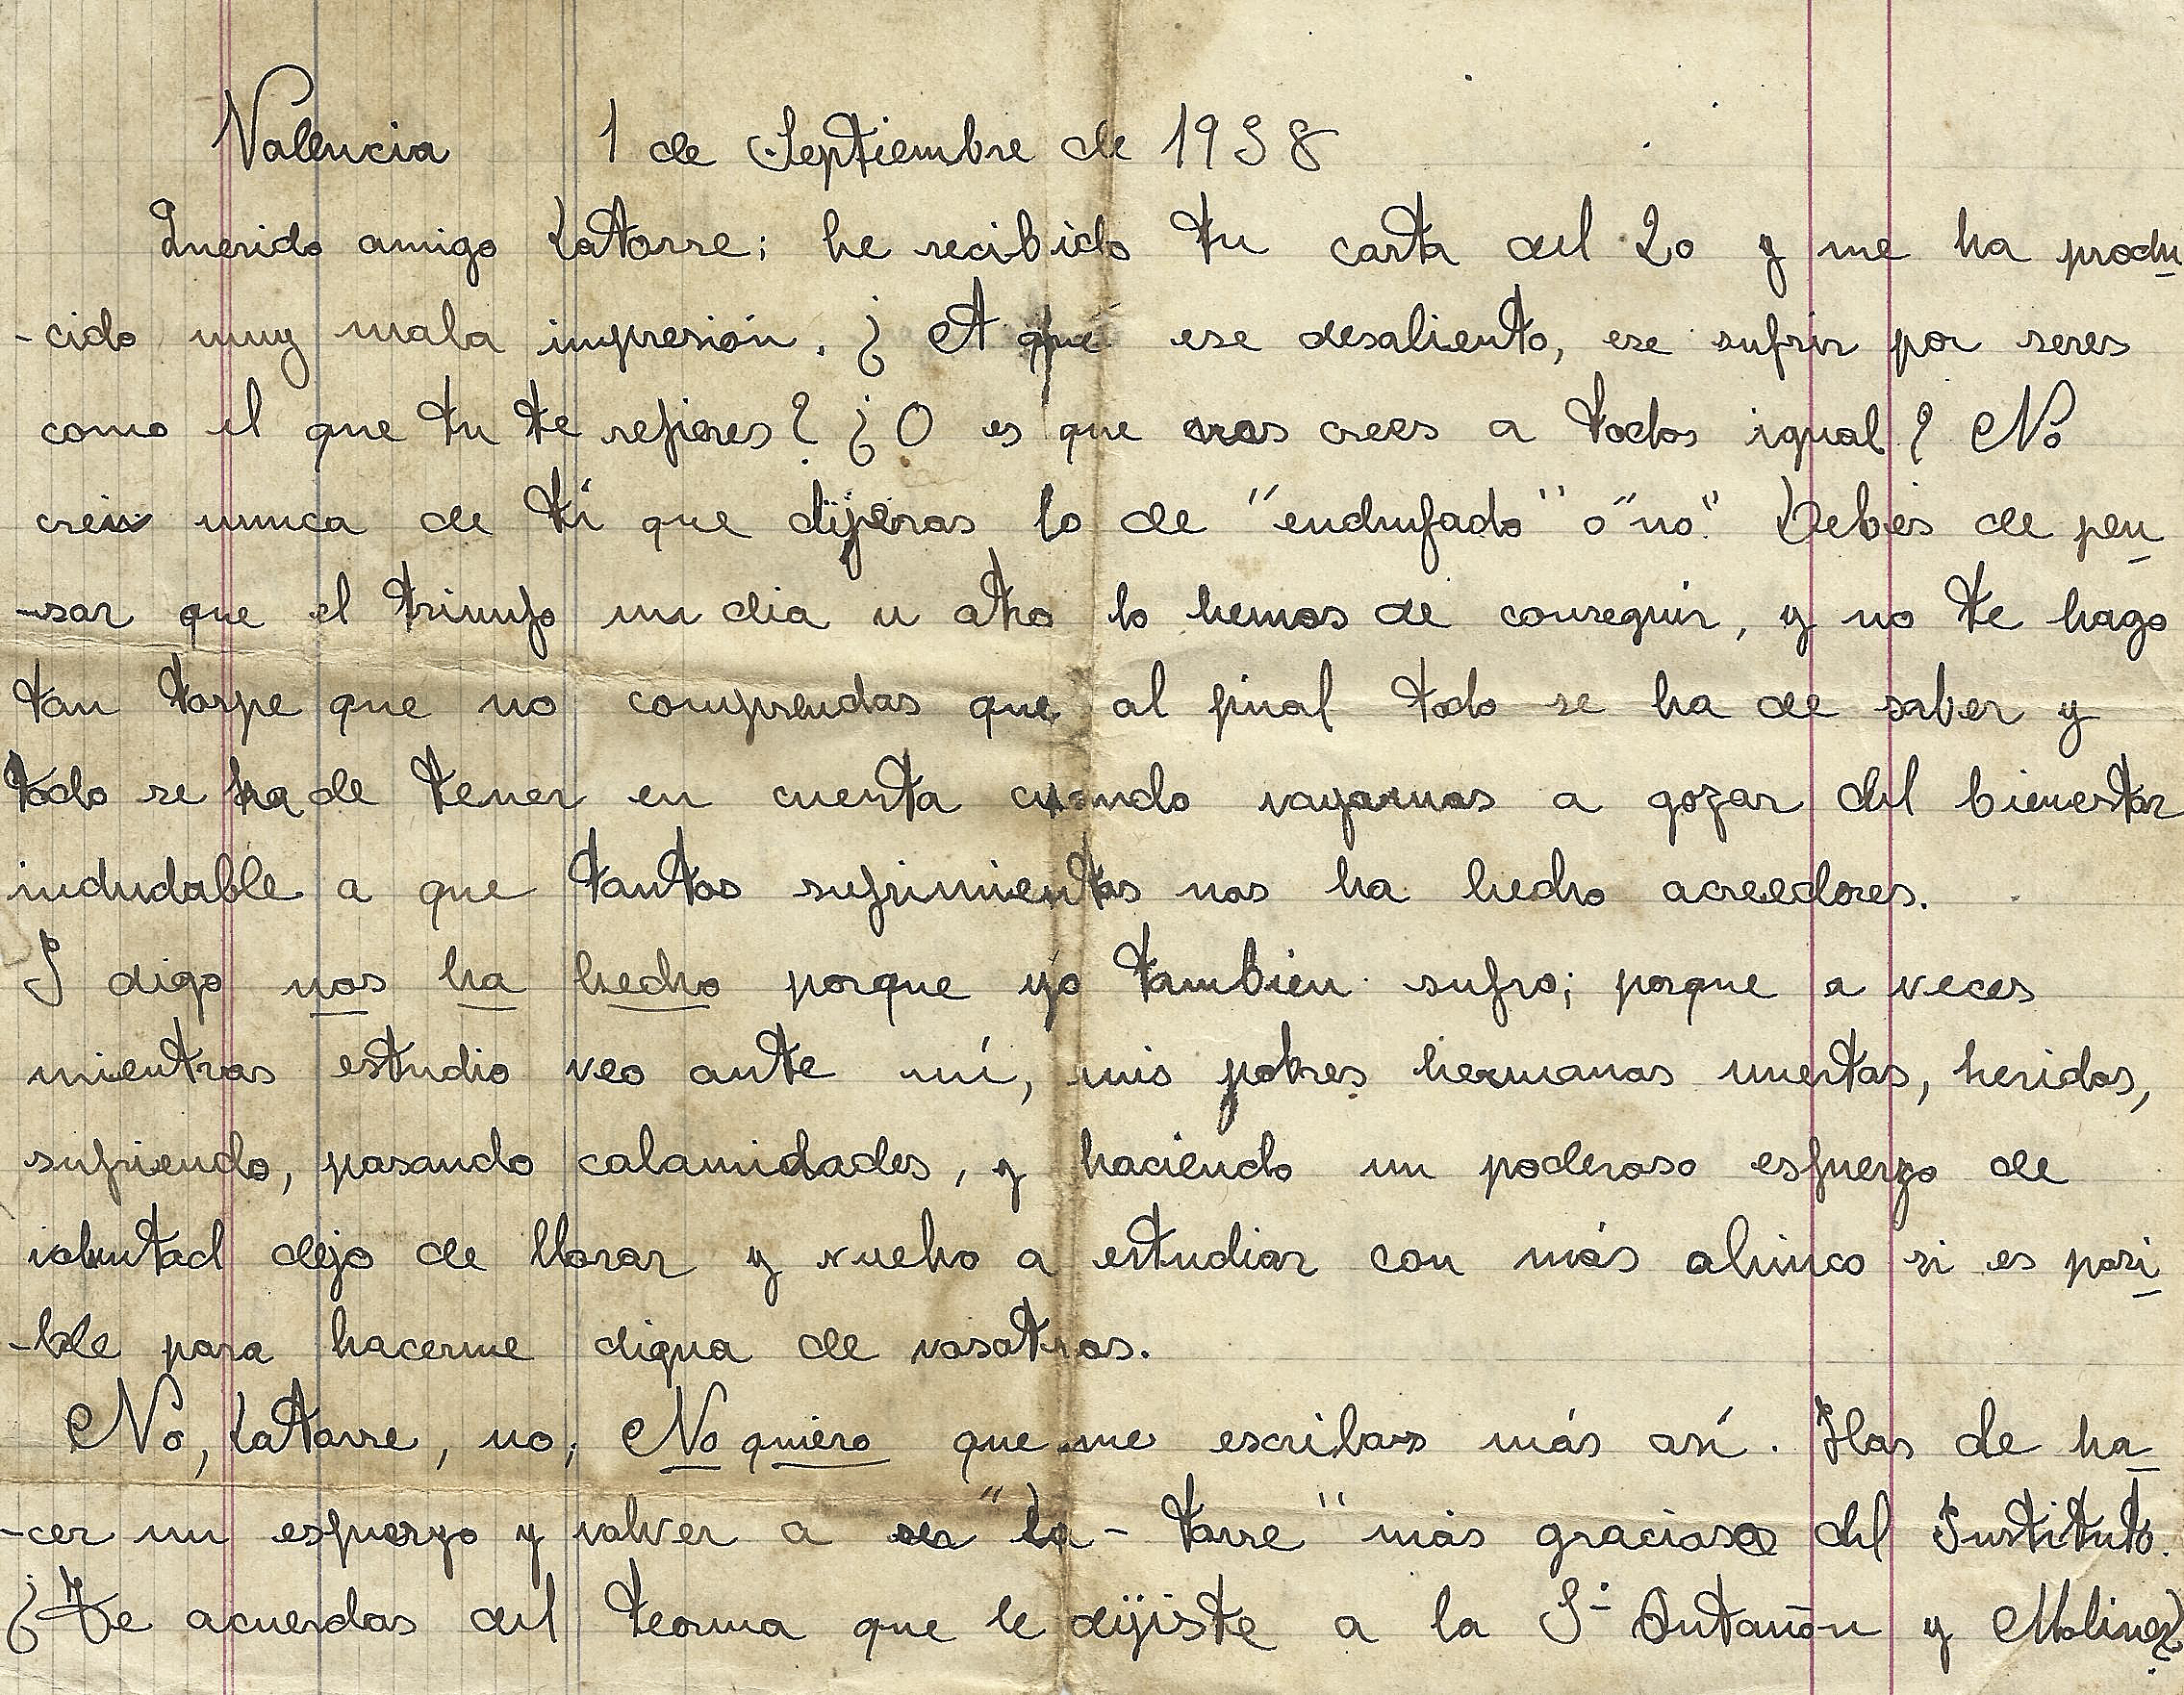 Valencia 1 de Septiembre de 1938
Querido amigo Latorre; he recibido tu carta del 20 y me ha produ
-cido muy mala impresión. ¿A qué ese desaliento, ese sufrir por seres
como el que tu te refieres? ¿O es que nos crees a todos igual? No
creí nunca de tí que dijeras lo de "enchufado" o "no". Debes de pen
-sar que el triunfo un dia u otro lo hemos de conseguir, y no te hago
tan torpe que no comprendas que al final todo se ha de saber y
todo se ha de tener en cuenta cuando vayamos a gozar del bienestar
indudable a que tantos sufrimientos nos ha hecho acreedores.
I digo nos ha hecho porque yo también sufro; porque a veces
mientras estudio veo ante mí, mis pobres hermanas muertas, heridas,
sufriendo, pasando calamidades, y haciendo un poderoso esfuerzo de
voluntad dejo de llorar y vuelvo a estudiar con más ahinco si es posi
-ble para hacerme digna de vosotros.
No, Latorre, no; No quiero que me escribas más así. Has de ha
-cer un esfuerzo y volver a ser "La-torre" más graciosa del Instituto.
¿Te acuerdas del teorma que le dijiste a la Sª Antañón y Molinez?